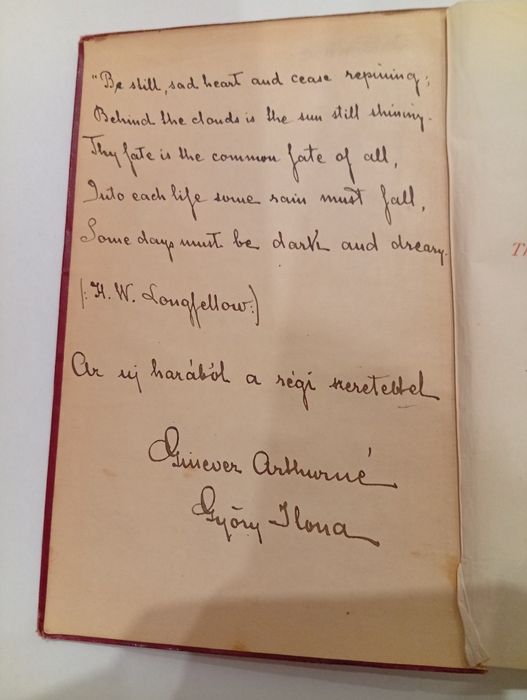 "Be still, sad heart and cease repining;
Behind the clouds is the sun still shining.
Thy fate is the common fate of all,
Into each life some rain must fall,
Some days must be dark and dreary.
(: H. W. Longfellow:)
Az új hazából a régi szeretettel
Ginever Arthurné
Győry Ilona
Th